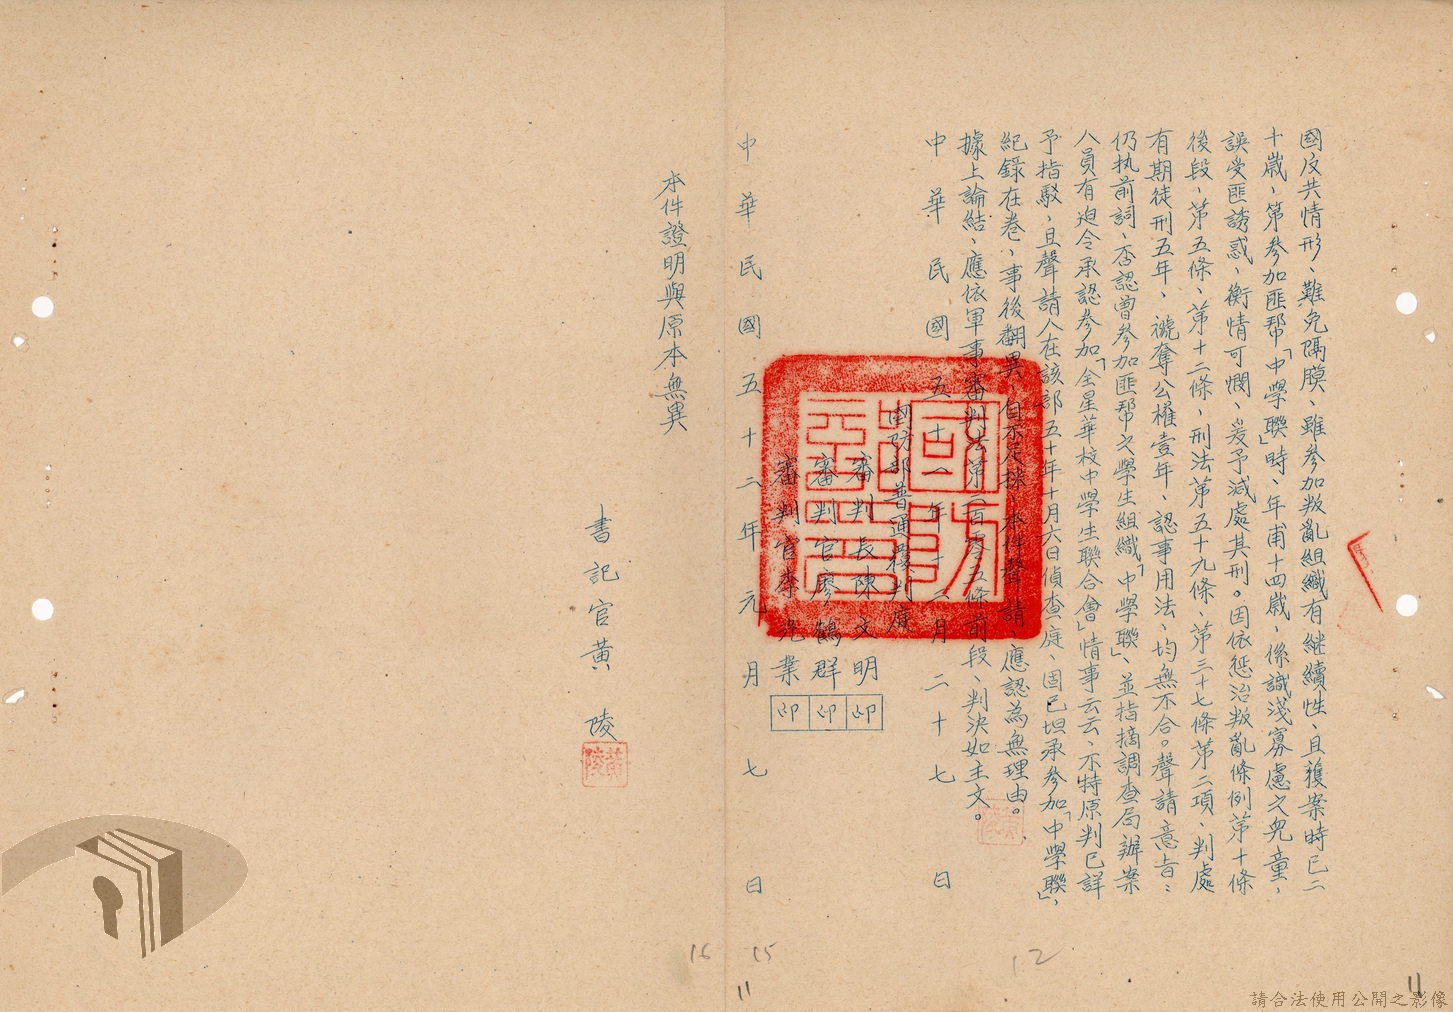 國反共情形、難免隔膜、雖參加叛亂組織有繼續性、且獲案時已二
十歲、第參加匪幫「中學聯」時、年甫十四歲、係識淺寡慮之兒童、
誤受匪誘惑、衡情可憫、爰予減處其刑。因依懲治叛亂條例第十條
後段、第五條、第十二條、刑法第五十九條、第三十七條第二項、判處
有期徒刑五年、褫奪公權壹年、認事用法、均無不合。聲請意旨：
仍执前詞、否認曾參加匪幫之學生組織「中學聯」、並指摘調查局辦案
人員有迫令承認參加「全星華校中學生聯合會」情事云云、不特原判已詳
予指駁、且聲請人在該部五十年十月六日偵查庭、固已坦承參加「中學聯」、
紀錄在卷、事後翻異、自不足採、本件聲請、應認為無理由。
據上論結、應依軍事審判法第二百零五條前段、判決如主文。
中華民國五十一年十二月二十七日
國防部普通覆判庭
審判長陳文明 印
審判官廖鶴群 印
審判官李光業 印
中華民國五十二年元月七日
本件證明與原本無異
書記官黃陵
黃陵
12
15
16
11
11
請合法使用公開之影像